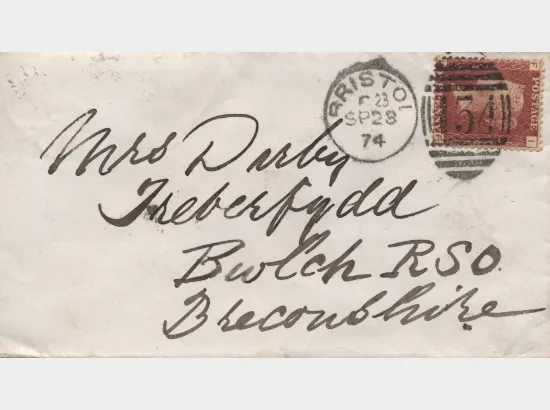 BRISTOL
C 23
SP 28
74
34
POSTAGE
Mrs Darby
Treberfydd
Bwlch RSO.
Breconshire